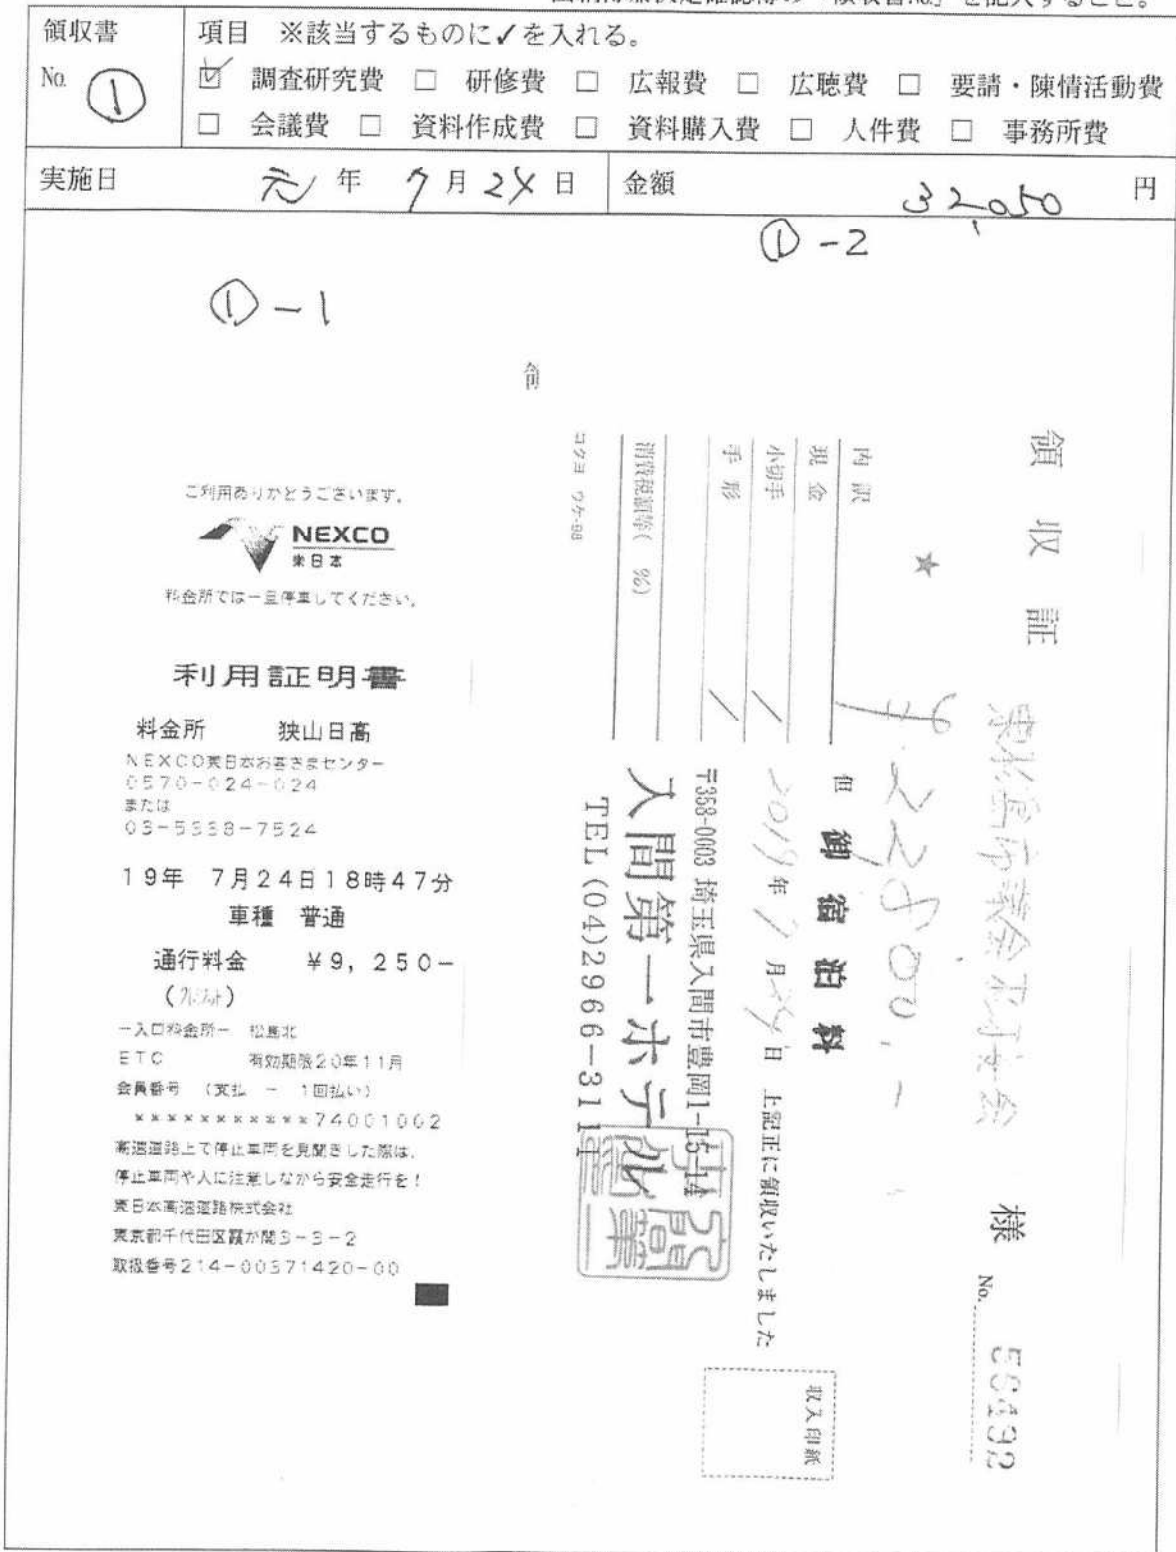 領収書 項目 ※該当するものに✓を入れる。
No. ① ☑ 調査研究費 □ 研修費 □ 広報費 □ 広聴費 □ 要請・陳情活動費
□ 会議費 □ 資料作成費 □ 資料購入費 □ 人件費 □ 事務所費
実施日 元年 7月24日 金額 32,050 円
①-1
ご利用ありがとうございます。
NEXCO
東日本
料金所では一旦停車してください。
利用証明書
料金所 狭山日高
NEXCO東日本お客さまセンター
0570-024-024
または
03-5338-7524
19年 7月24日18時47分
車種 普通
通行料金 ¥9,250-
(クレジット)
-入口料金所- 松島北
ETC 有効期限20年11月
会員番号 (支払 - 1回払い)
***********74001002
高速道路上で停止車両を見聞きした際は、
停止車両や人に注意しながら安全走行を!
東日本高速道路株式会社
東京都千代田区霞が関3-3-2
取扱番号214-00371420-00
①-2
領収証
東松島市議会 様
No. 56492
★ ¥22800,-
但 御宿泊料
2019年7月24日 上記正に領収いたしました
内訳
現金
小切手
手形
消費税額等( %)
コクヨ ウケ-98
〒358-0003 埼玉県入間市豊岡1-15-14
入間第一ホテル
TEL (04)2966-3111
収入印紙